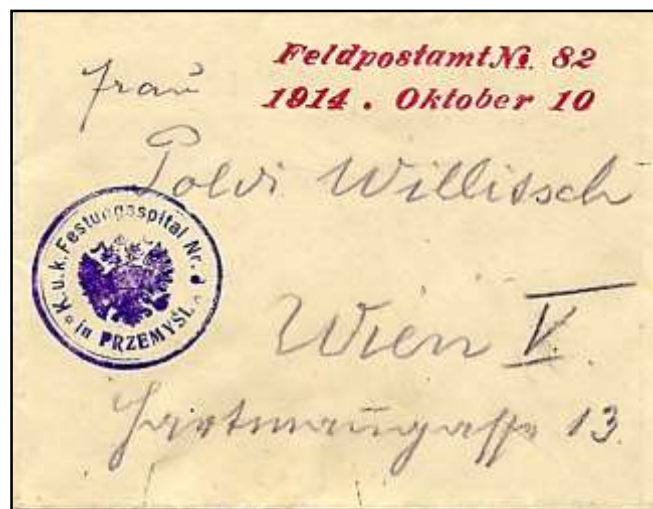 Feldpostamt No. 82
1914 . Oktober 10
Frau
Poldi Willissch
K.u.k. Festungsspital Nr.
in PRZEMYŚL
Wien V.
Hartmanngasse 13.